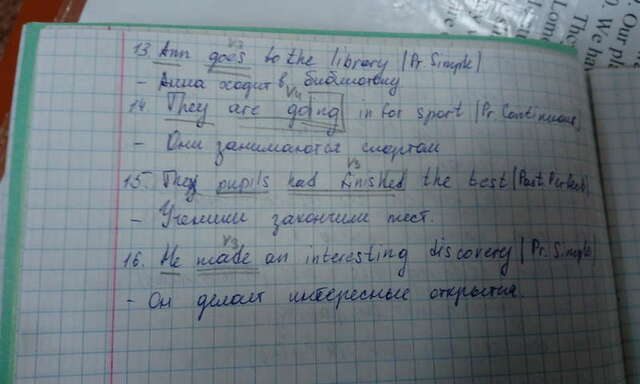 V3
13. Ann goes to the library | Pr. Simple |
- Анна ходит в библиотеку
V4
14. They are going in for sport | Pr. Continuous |
- Они занимаются спортом
V3
15. They pupils had finished the best | Past. Perfect |
- Ученики закончили тест.
V3
16. He made an interesting discovery | Pr. Simple
- Он делает интересные открытия.
. Our
0. We ha
Lom
The